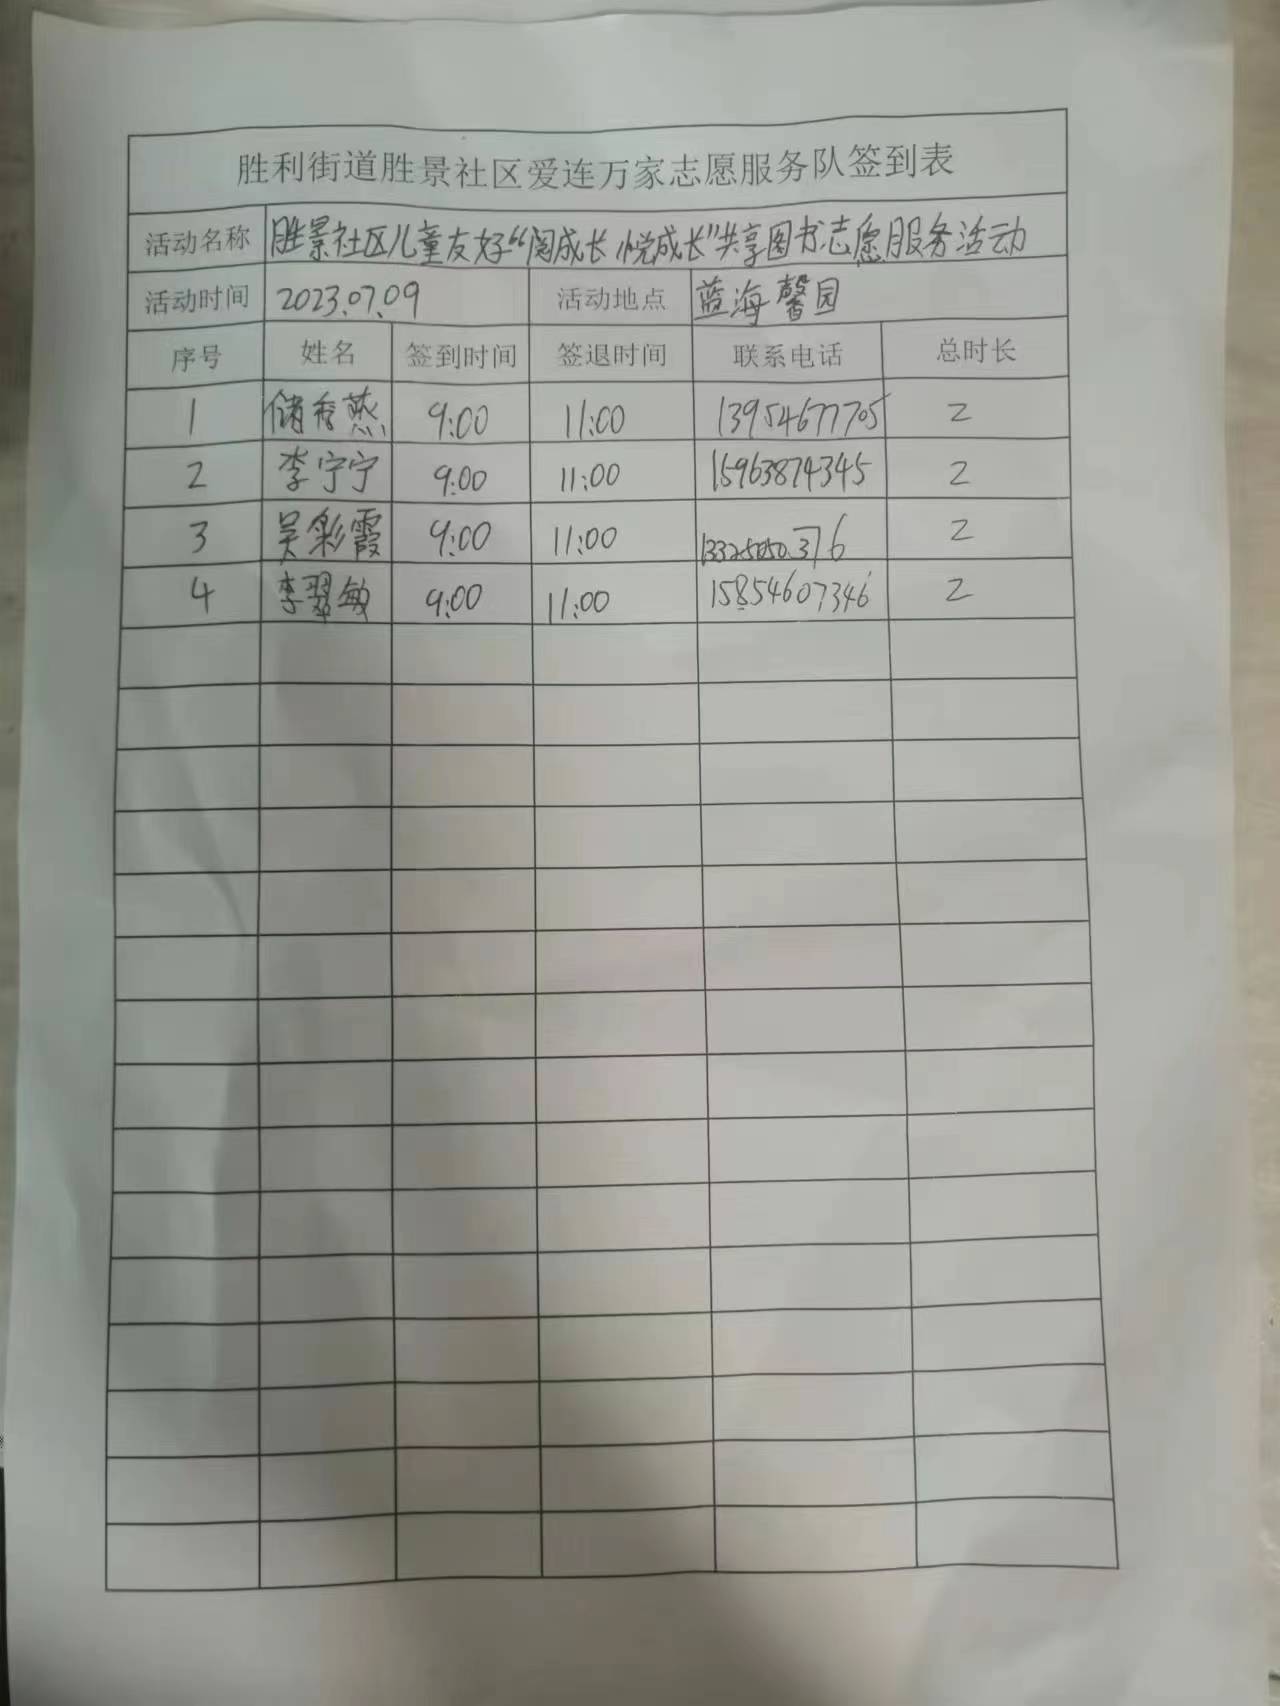 胜利街道胜景社区爱连万家志愿服务队签到表
活动名称 胜景社区儿童友好“阅成长 悦成长”共享图书志愿服务活动
活动时间 2023.07.09 活动地点 蓝海馨园
序号 姓名 签到时间 签退时间 联系电话 总时长
1 储秀燕 9:00 11:00 13954677705 2
2 李宁宁 9:00 11:00 15963874345 2
3 吴彩霞 9:00 11:00 2
4 李翠敏 9:00 11:00 15854607346 2